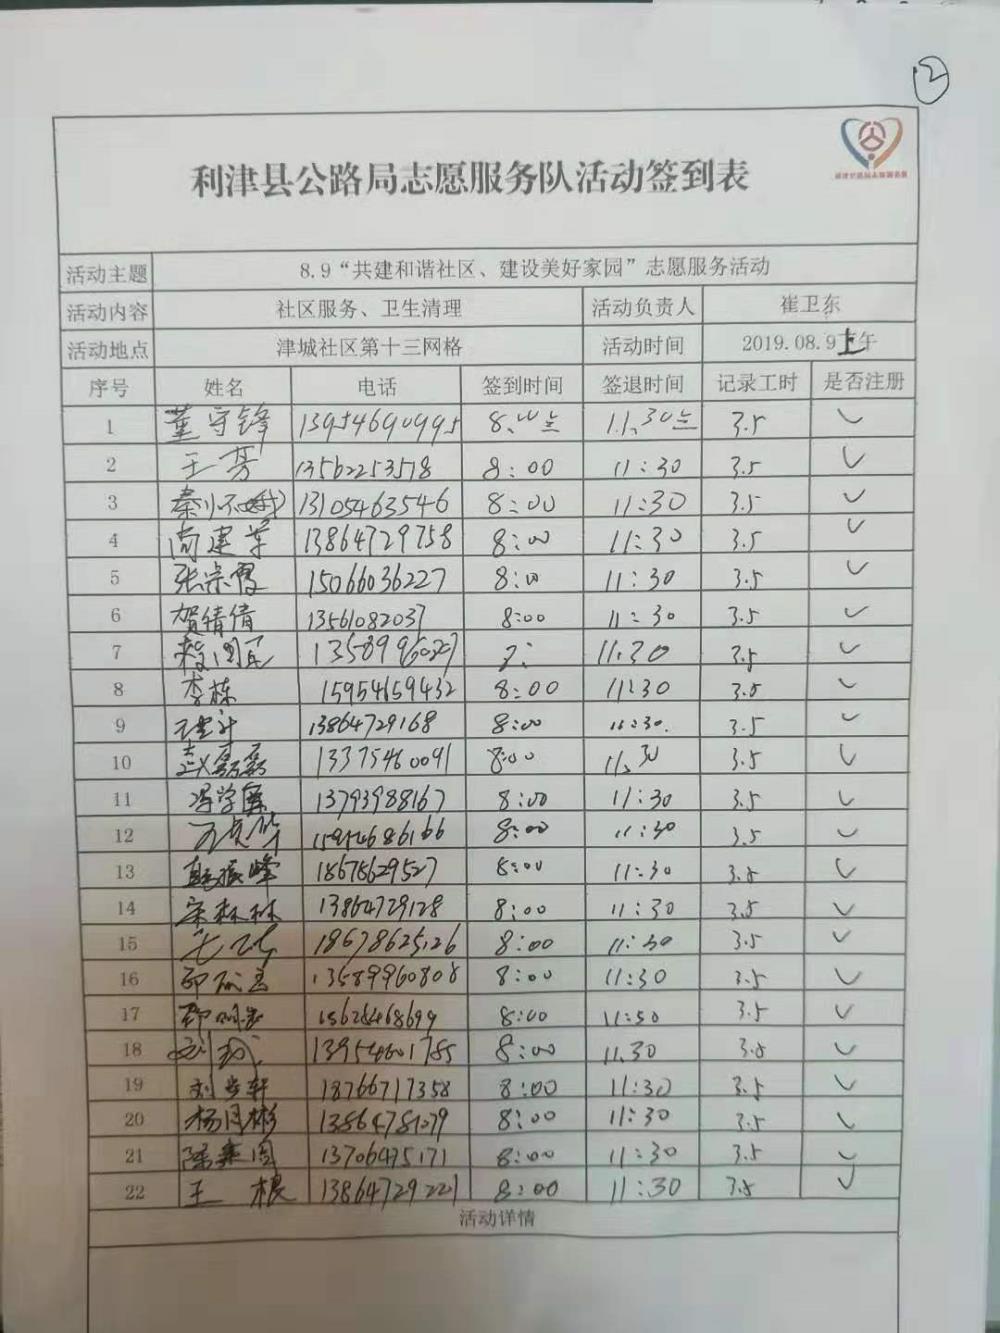 ②
利津县公路局志愿服务队活动签到表
活动主题 8.9“共建和谐社区、建设美好家园”志愿服务活动
活动内容 社区服务、卫生清理 活动负责人 崔卫东
活动地点 津城社区第十三网格 活动时间 2019.08.9上午
序号 姓名 电话 签到时间 签退时间 记录工时 是否注册
1 董守锋 13954690995 11.30 3.5 ✓
2 王芳 13562253518 8:00 11:30 3.5 ✓
3 13105463546 8:00 11:30 3.5 ✓
4 尚建军 13864729758 8:00 11:30 3.5 ✓
5 张宗霞 15066036227 8:00 11:30 3.5 ✓
6 贺倩倩 13561082037 8:00 11:30 3.5 ✓
7 11.30 3.5 ✓
8 李栋 15954659432 8:00 11:30 3.5 ✓
9 13864729168 8:00 11:30. 3.5 ✓
10 赵磊磊 13375460091 8:00 11.30 3.5 ✓
11 13793988167 8:00 11:30 3.5 ✓
12 15954686166 8:00 11:30 3.5 ✓
13 18678629527 8:00 11:30 3.5 ✓
14 宋森林 13864729128 8:00 11:30 3.5 ✓
15 18678625126 8:00 11:30 3.5 ✓
16 13589960808 8:00 11:30 3.5 ✓
17 8:00 3.5 ✓
18 13954601785 8:00 11.30 3.5 ✓
19 18766717358 8:00 11:30 3.5 ✓
20 杨同彬 8:00 11:30 3.5 ✓
21 13706475171 8:00 11:30 3.5 ✓
22 王根 13864729221 8:00 11:30 3.5 ✓
活动详情